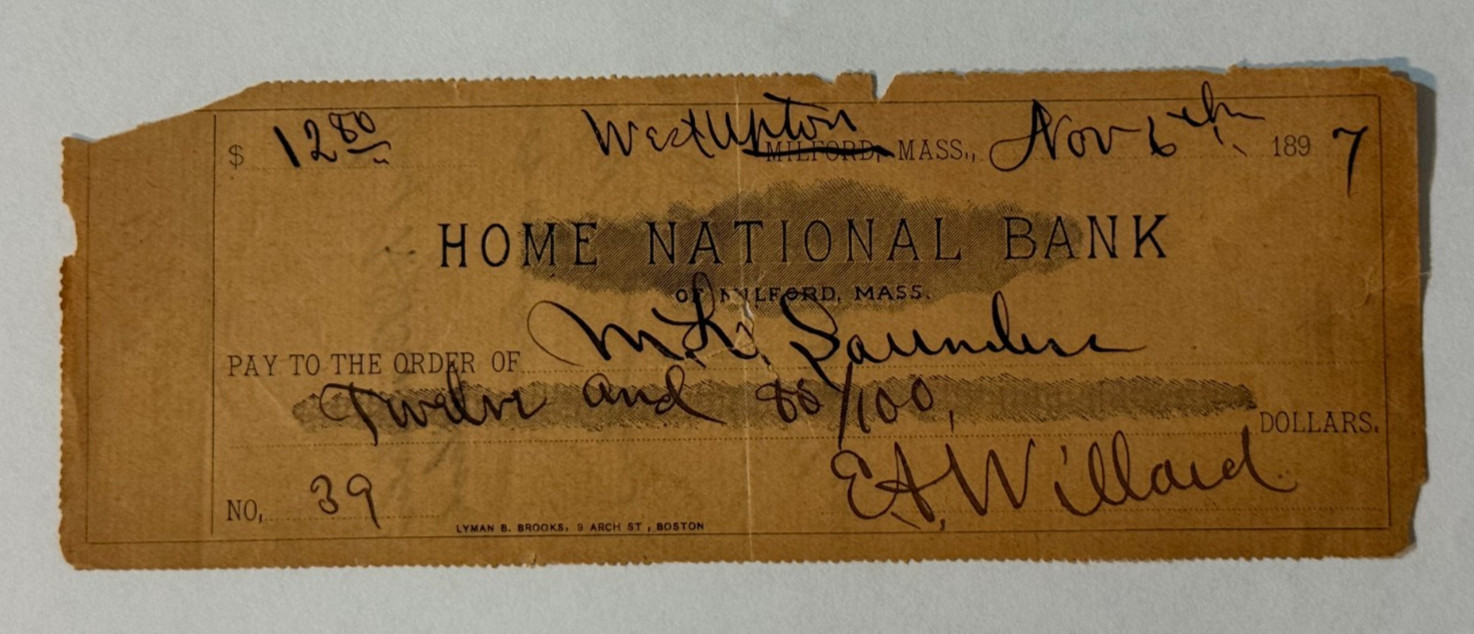 $ 12 80 West Upton MILFORD, MASS., Nov 6th, 1897
HOME NATIONAL BANK
OF MILFORD, MASS.
PAY TO THE ORDER OF M. L. Saunders
Twelve and 80/100, DOLLARS.
E. A. Willard
NO, 39
LYMAN B. BROOKS, 9 ARCH ST, BOSTON